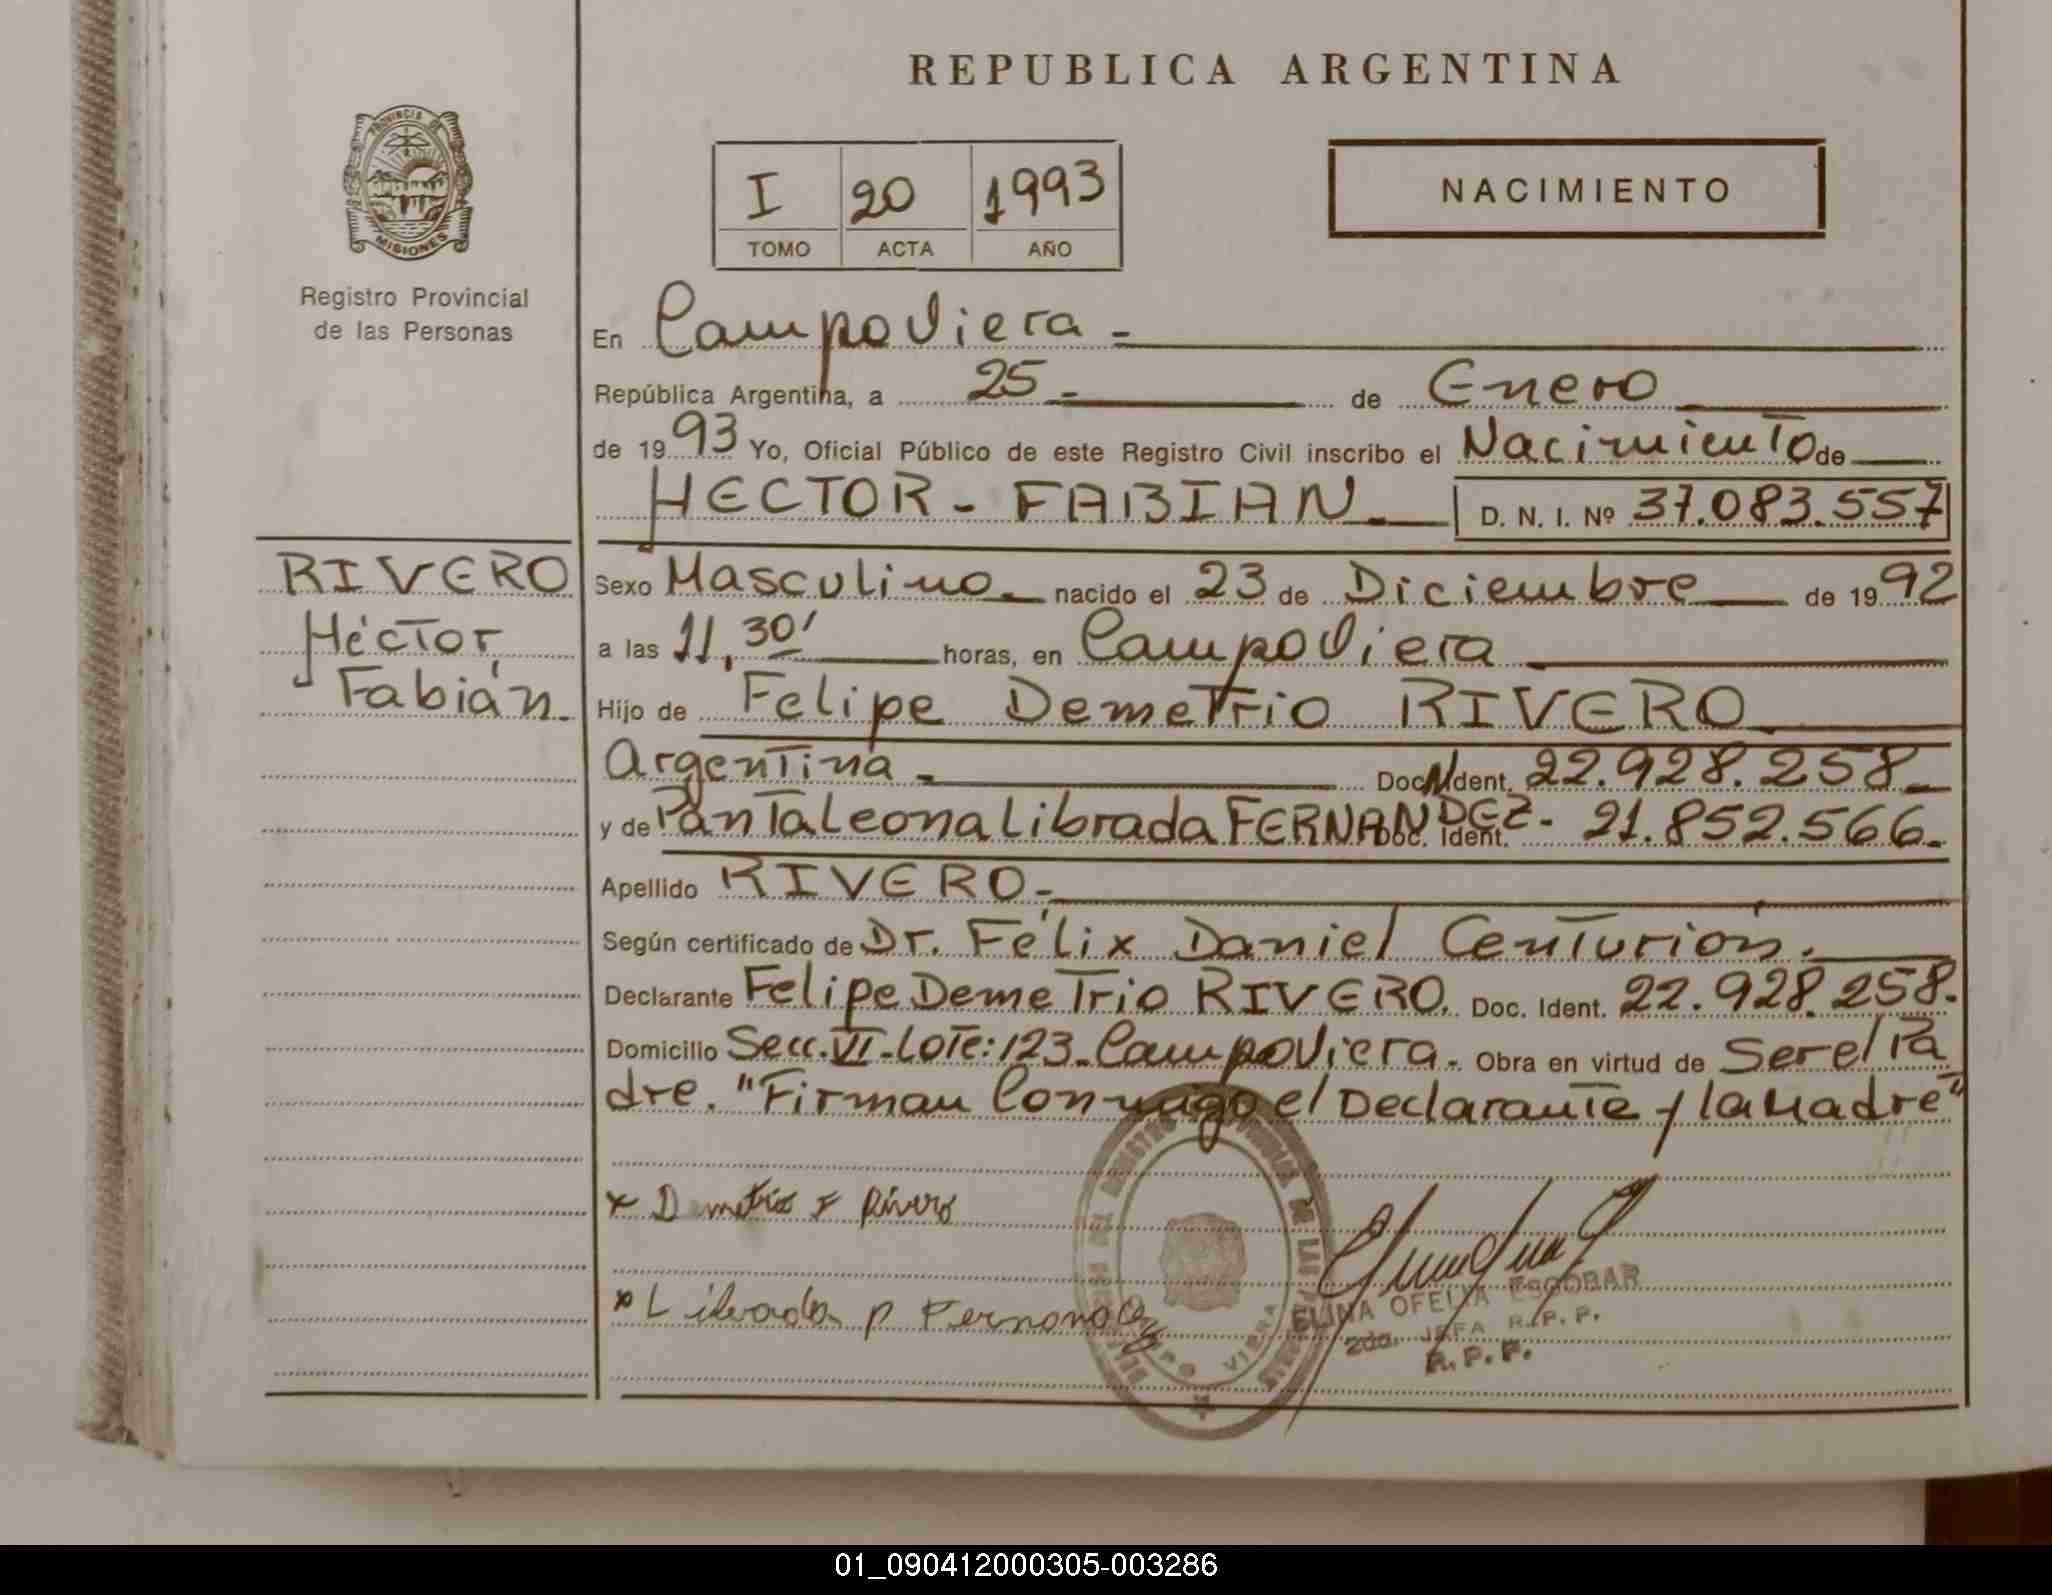 REPUBLICA ARGENTINA
PROVINCIA DE
MISIONES
Registro Provincial
de las Personas
I 20 1993
TOMO ACTA AÑO
NACIMIENTO
En Campo Viera -
República Argentina, a 25- de Enero
de 1993 Yo, Oficial Público de este Registro Civil inscribo el Nacimiento de
HECTOR - FABIAN - D. N. I. Nº 37.083.557
RIVERO
Héctor
Fabián.
Sexo Masculino. nacido el 23 de Diciembre de 1992
a las 11,30' horas, en Campo Viera
Hijo de Felipe Demetrio RIVERO
Argentina - Doc. Ident. 22.928.258
y de Pantaleona Librada FERNANDEZ- Doc. Ident. 21.852.566.
Apellido RIVERO.-
Según certificado de Dr. Félix Daniel Centurión.
Declarante Felipe Demetrio RIVERO. Doc. Ident. 22.928.258.
Domicilio Secc. VI-Lote: 123-Campo Viera. Obra en virtud de Ser el Pa
dre. "Firman Conmigo el Declarante y la Madre"
x Demetrio F Rivero
x Librada P Fernandez
ELINA OFELIA ESCOBAR
2da. JEFA R.P.P.
R.P.P.
01_090412000305-003286